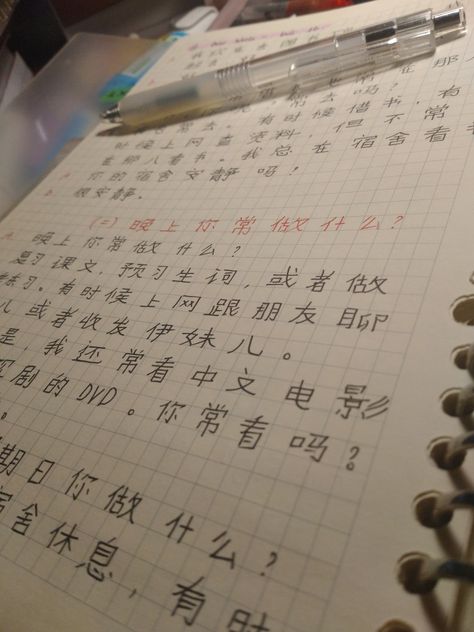 我
常去吗?
常去。有时候借书,有
时候上网查资料,但不常
在那儿看书。我总在宿舍看书
你的宿舍安静吗?
很安静。
(二)晚上你常做什么?
晚上你常做什么?
复习课文,预习生词,或者做
练习。有时候上网跟朋友聊
儿或者收发伊妹儿。
是 我还常看中文电影
视剧的DVD。你常看吗?
期日你做什么?
宿舍休息,有时